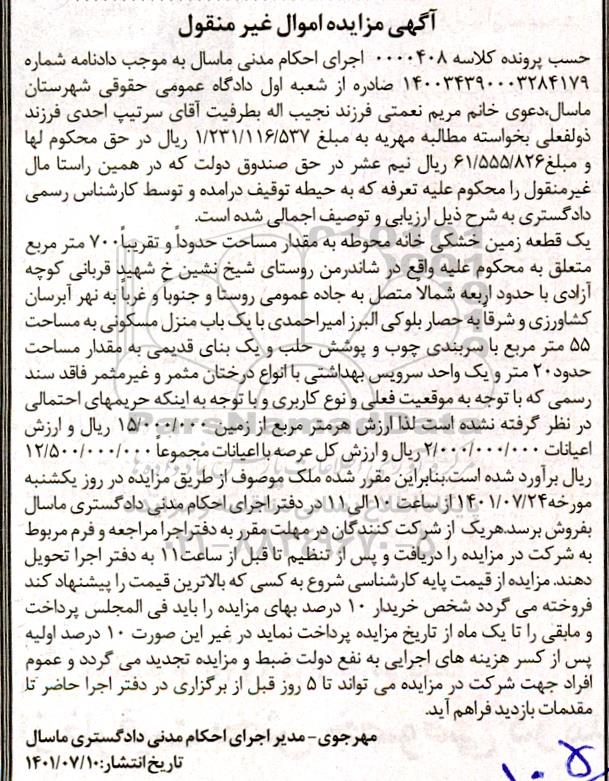 آگهی مزایده اموال غیر منقول
حسب پرونده کلاسه ۰۰۰۰۴۰۸ اجرای احکام مدنی ماسال به موجب دادنامه شماره
۱۴۰۰۳۴۳۹۰۰۰۳۲۸۴۱۷۹ صادره از شعبه اول دادگاه عمومی حقوقی شهرستان
ماسال،دعوی خانم مریم نعمتی فرزند نجیب اله بطرفیت آقای سرتیپ احدی فرزند
ذولفعلی بخواسته مطالبه مهریه به مبلغ ۱/۲۳۱/۱۱۶/۵۳۷ ریال در حق محکوم لها
و مبلغ۶۱/۵۵۵/۸۲۶ ریال نیم عشر در حق صندوق دولت که در همین راستا مال
غیرمنقول را محکوم علیه تعرفه که به حیطه توقیف درامده و توسط کارشناس رسمی
دادگستری به شرح ذیل ارزیابی و توصیف اجمالی شده است.
یک قطعه زمین خشکی خانه محوطه به مقدار مساحت حدوداً و تقریباً۷۰۰ متر مربع
متعلق به محکوم علیه واقع در شاندرمن روستای شیخ نشین خ شهید قربانی کوچه
آزادی با حدود اربعه شمالاً متصل به جاده عمومی روستا و جنوبا و غرباً به نهر آبرسان
کشاورزی و شرقاً به حصار بلوکی البرز امیراحمدی با یک باب منزل مسکونی به مساحت
۵۵ متر مربع با سربندی چوب و پوشش حلب و یک بنای قدیمی به مقدار مساحت
حدود۲۰ متر و یک واحد سرویس بهداشتی با انواع درختان مثمر و غیرمثمر فاقد سند
رسمی که با توجه به موقعیت فعلی و نوع کاربری و با توجه به اینکه حریمهای احتمالی
در نظر گرفته نشده است لذا ارزش هرمتر مربع از زمین ۱۵/۰۰۰/۰۰۰ ریال و ارزش
اعیانات ۲/۰۰۰/۰۰۰/۰۰۰ ریال و ارزش کل عرصه با اعیانات مجموعاً ۱۲/۵۰۰/۰۰۰/۰۰۰
ریال برآورد شده است.بنابراین مقرر شده ملک موصوف از طریق مزایده در روز یکشنبه
مورخه۱۴۰۱/۰۷/۲۴ از ساعت ۱۰ الی ۱۱ در دفتر اجرای احکام مدنی دادگستری ماسال
بفروش برسد.هریک از شرکت کنندگان در مهلت مقرر به دفتراجرا مراجعه و فرم مربوط
به شرکت در مزایده را دریافت و پس از تنظیم تا قبل از ساعت۱۱ به دفتر اجرا تحویل
دهند. مزایده از قیمت پایه کارشناسی شروع به کسی که بالاترین قیمت را پیشنهاد کند
فروخته می گردد شخص خریدار ۱۰ درصد بهای مزایده را باید فی المجلس پرداخت
و مابقی را تا یک ماه از تاریخ مزایده پرداخت نماید در غیر این صورت ۱۰ درصد اولیه
پس از کسر هزینه های اجرایی به نفع دولت ضبط و مزایده تجدید می گردد و عموم
افراد جهت شرکت در مزایده می تواند تا ۵ روز قبل از برگزاری در دفتر اجرا حاضر تا
مقدمات بازدید فراهم آید.
مهرجوی- مدیر اجرای احکام مدنی دادگستری ماسال
تاریخ انتشار:۱۴۰۱/۰۷/۱۰
ParsNamadData
۰۲۱-۸۸۳۴۹۶۷۰-۵